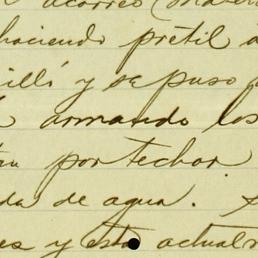 acarreo
haciendo pretil
illó y se puso
armando los
por techar
da de agua.
es y esta actual